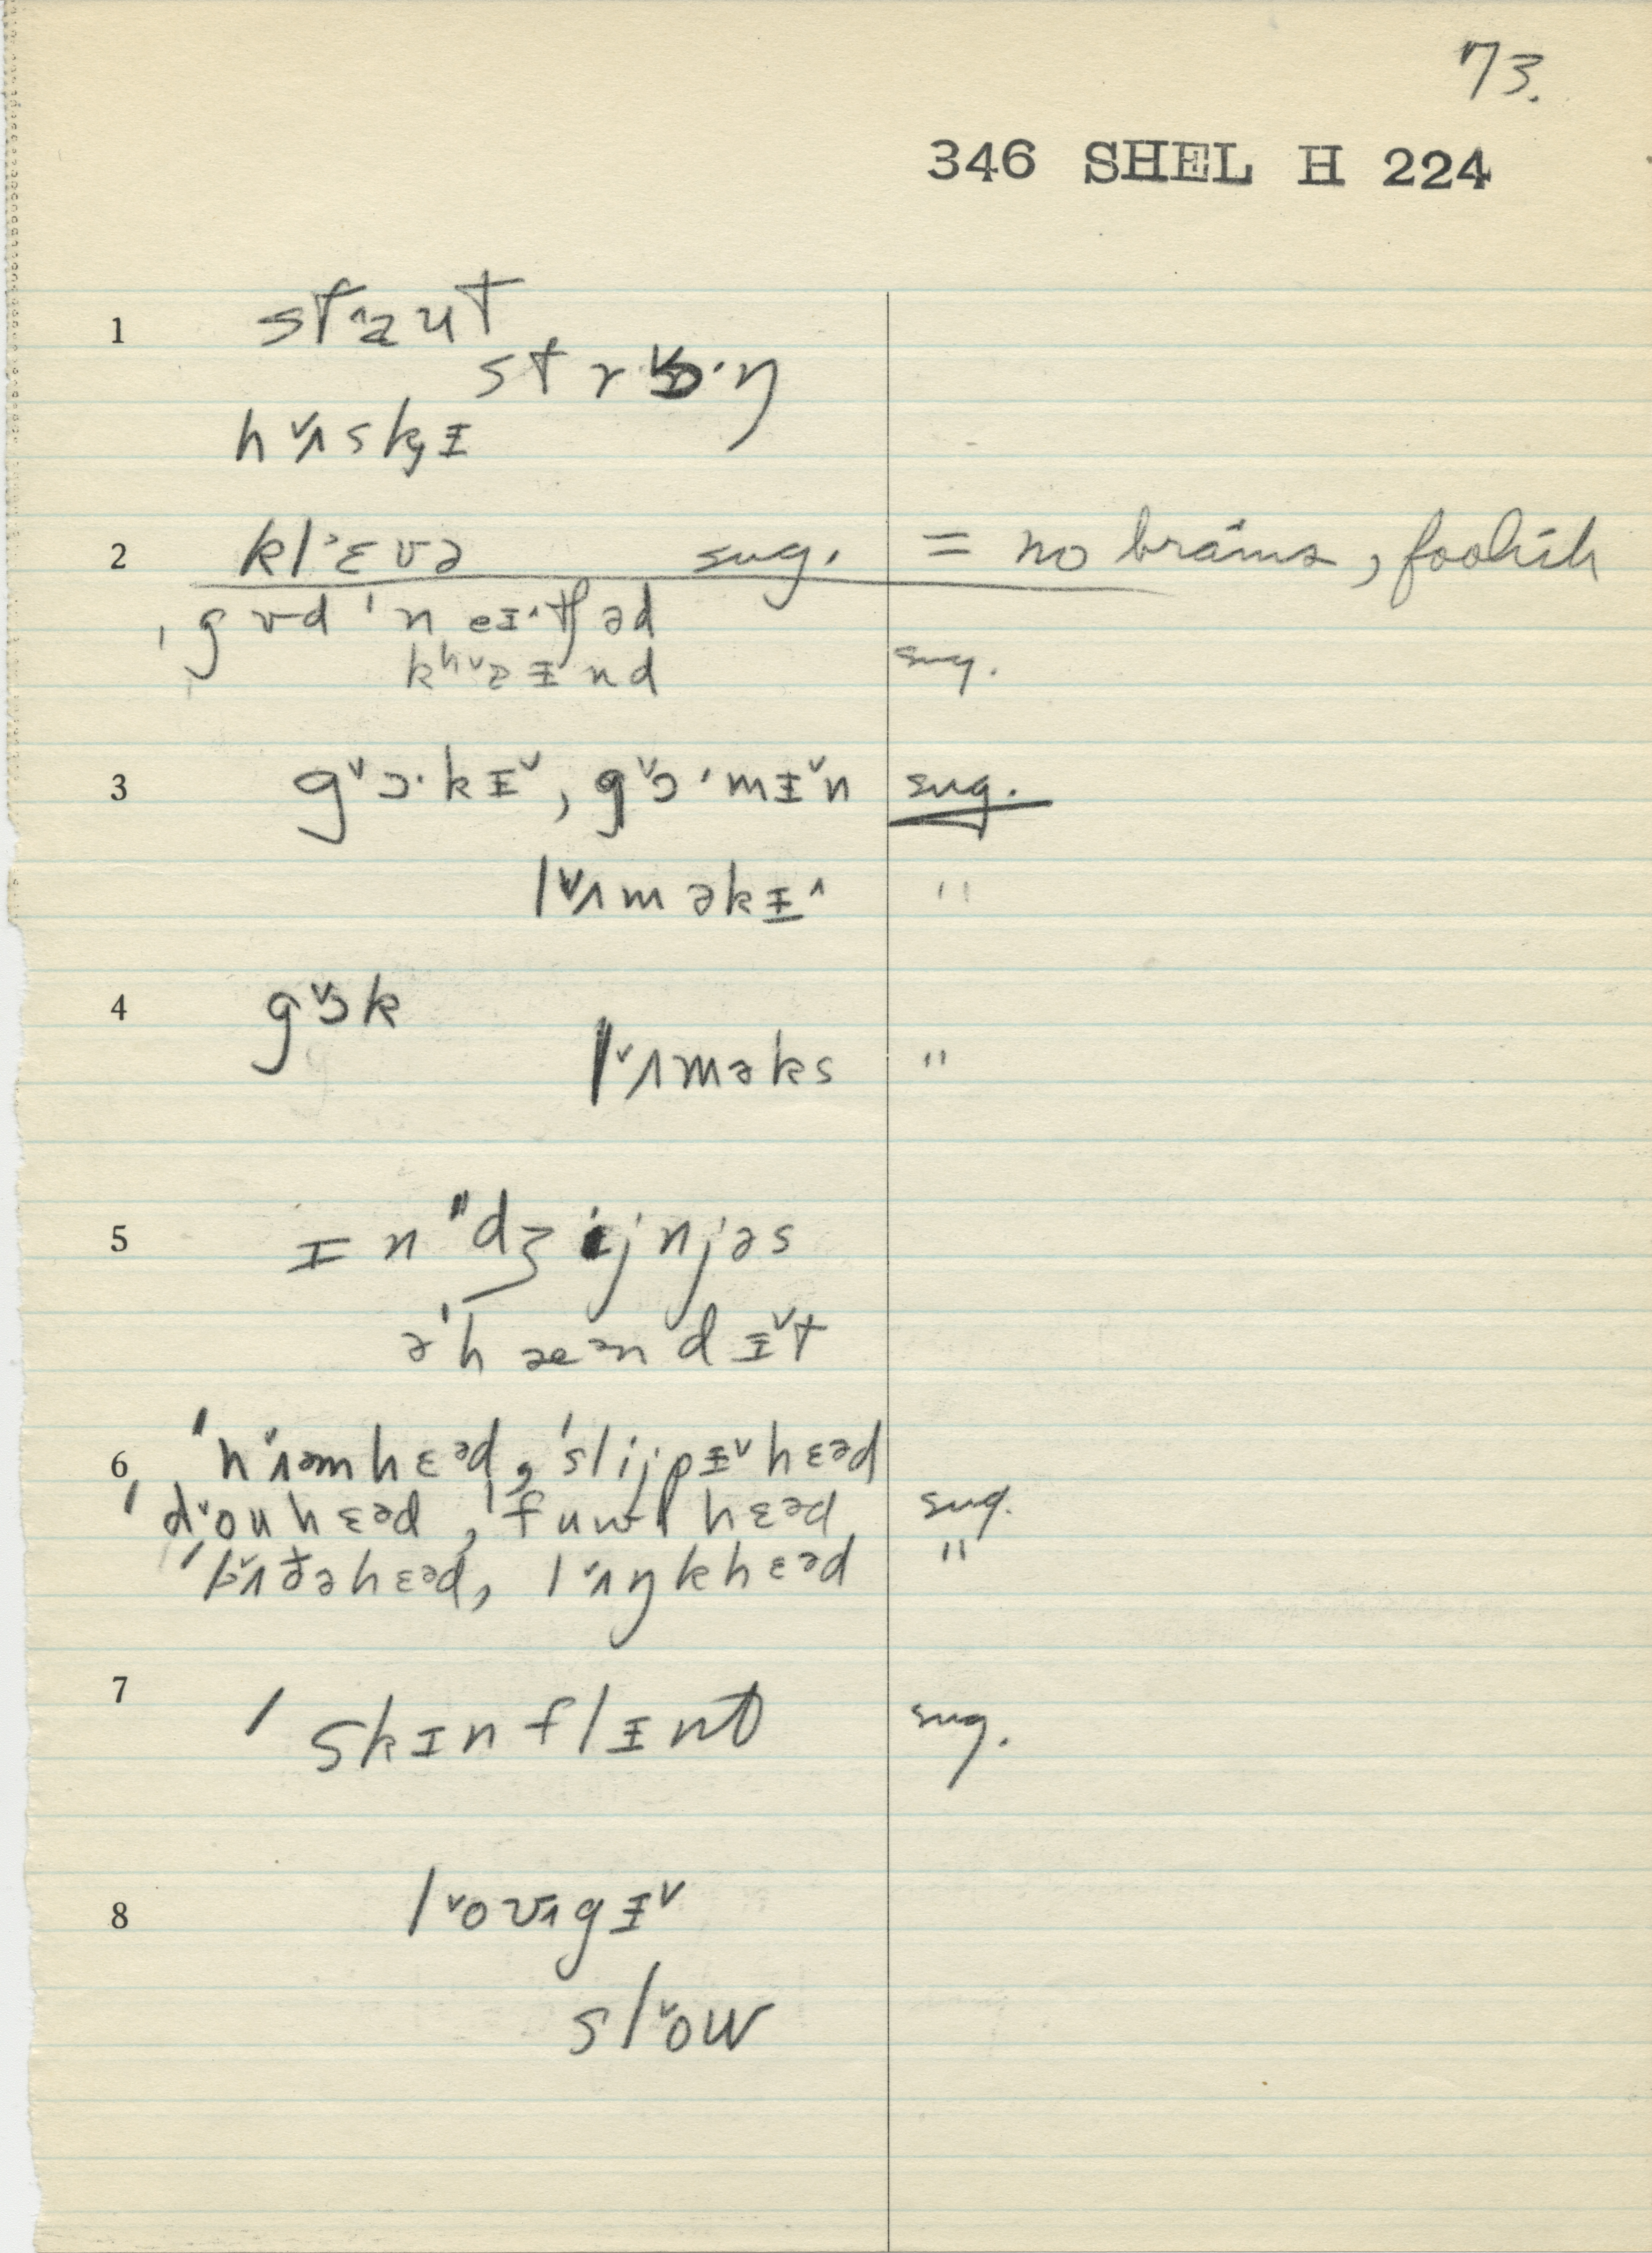 73.
346 SHEL H 224
1 st˄aut
strɔ˅·ŋ
h˅ʌskɪ
2 kl˃ɛvə sug. = no brains, foolish
ˈgʊdˈneɪ˄tʃəd
kʰ˅aɪnd sug.
3 g˅ɔ·kɪ˅, g˅ɔ·mɪ˅n sug.
l˅ʌməkɪ˄ "
4 g˅ɔk
l˅ʌməks "
5 ɪn"dʒijnjəs
əˈhæᵊndɪ˅t
6 ˈn˅ʌmhɛᵊd, ˈslijpɪ˅hɛᵊd
ˈd˅ouhɛᵊd, ˈfuwlhɛᵊd sug.
l˅ʌŋkhɛᵊd "
7 ˈskɪnflɪnt sug.
8 l˅oʊgɪ˅
sl˅ow